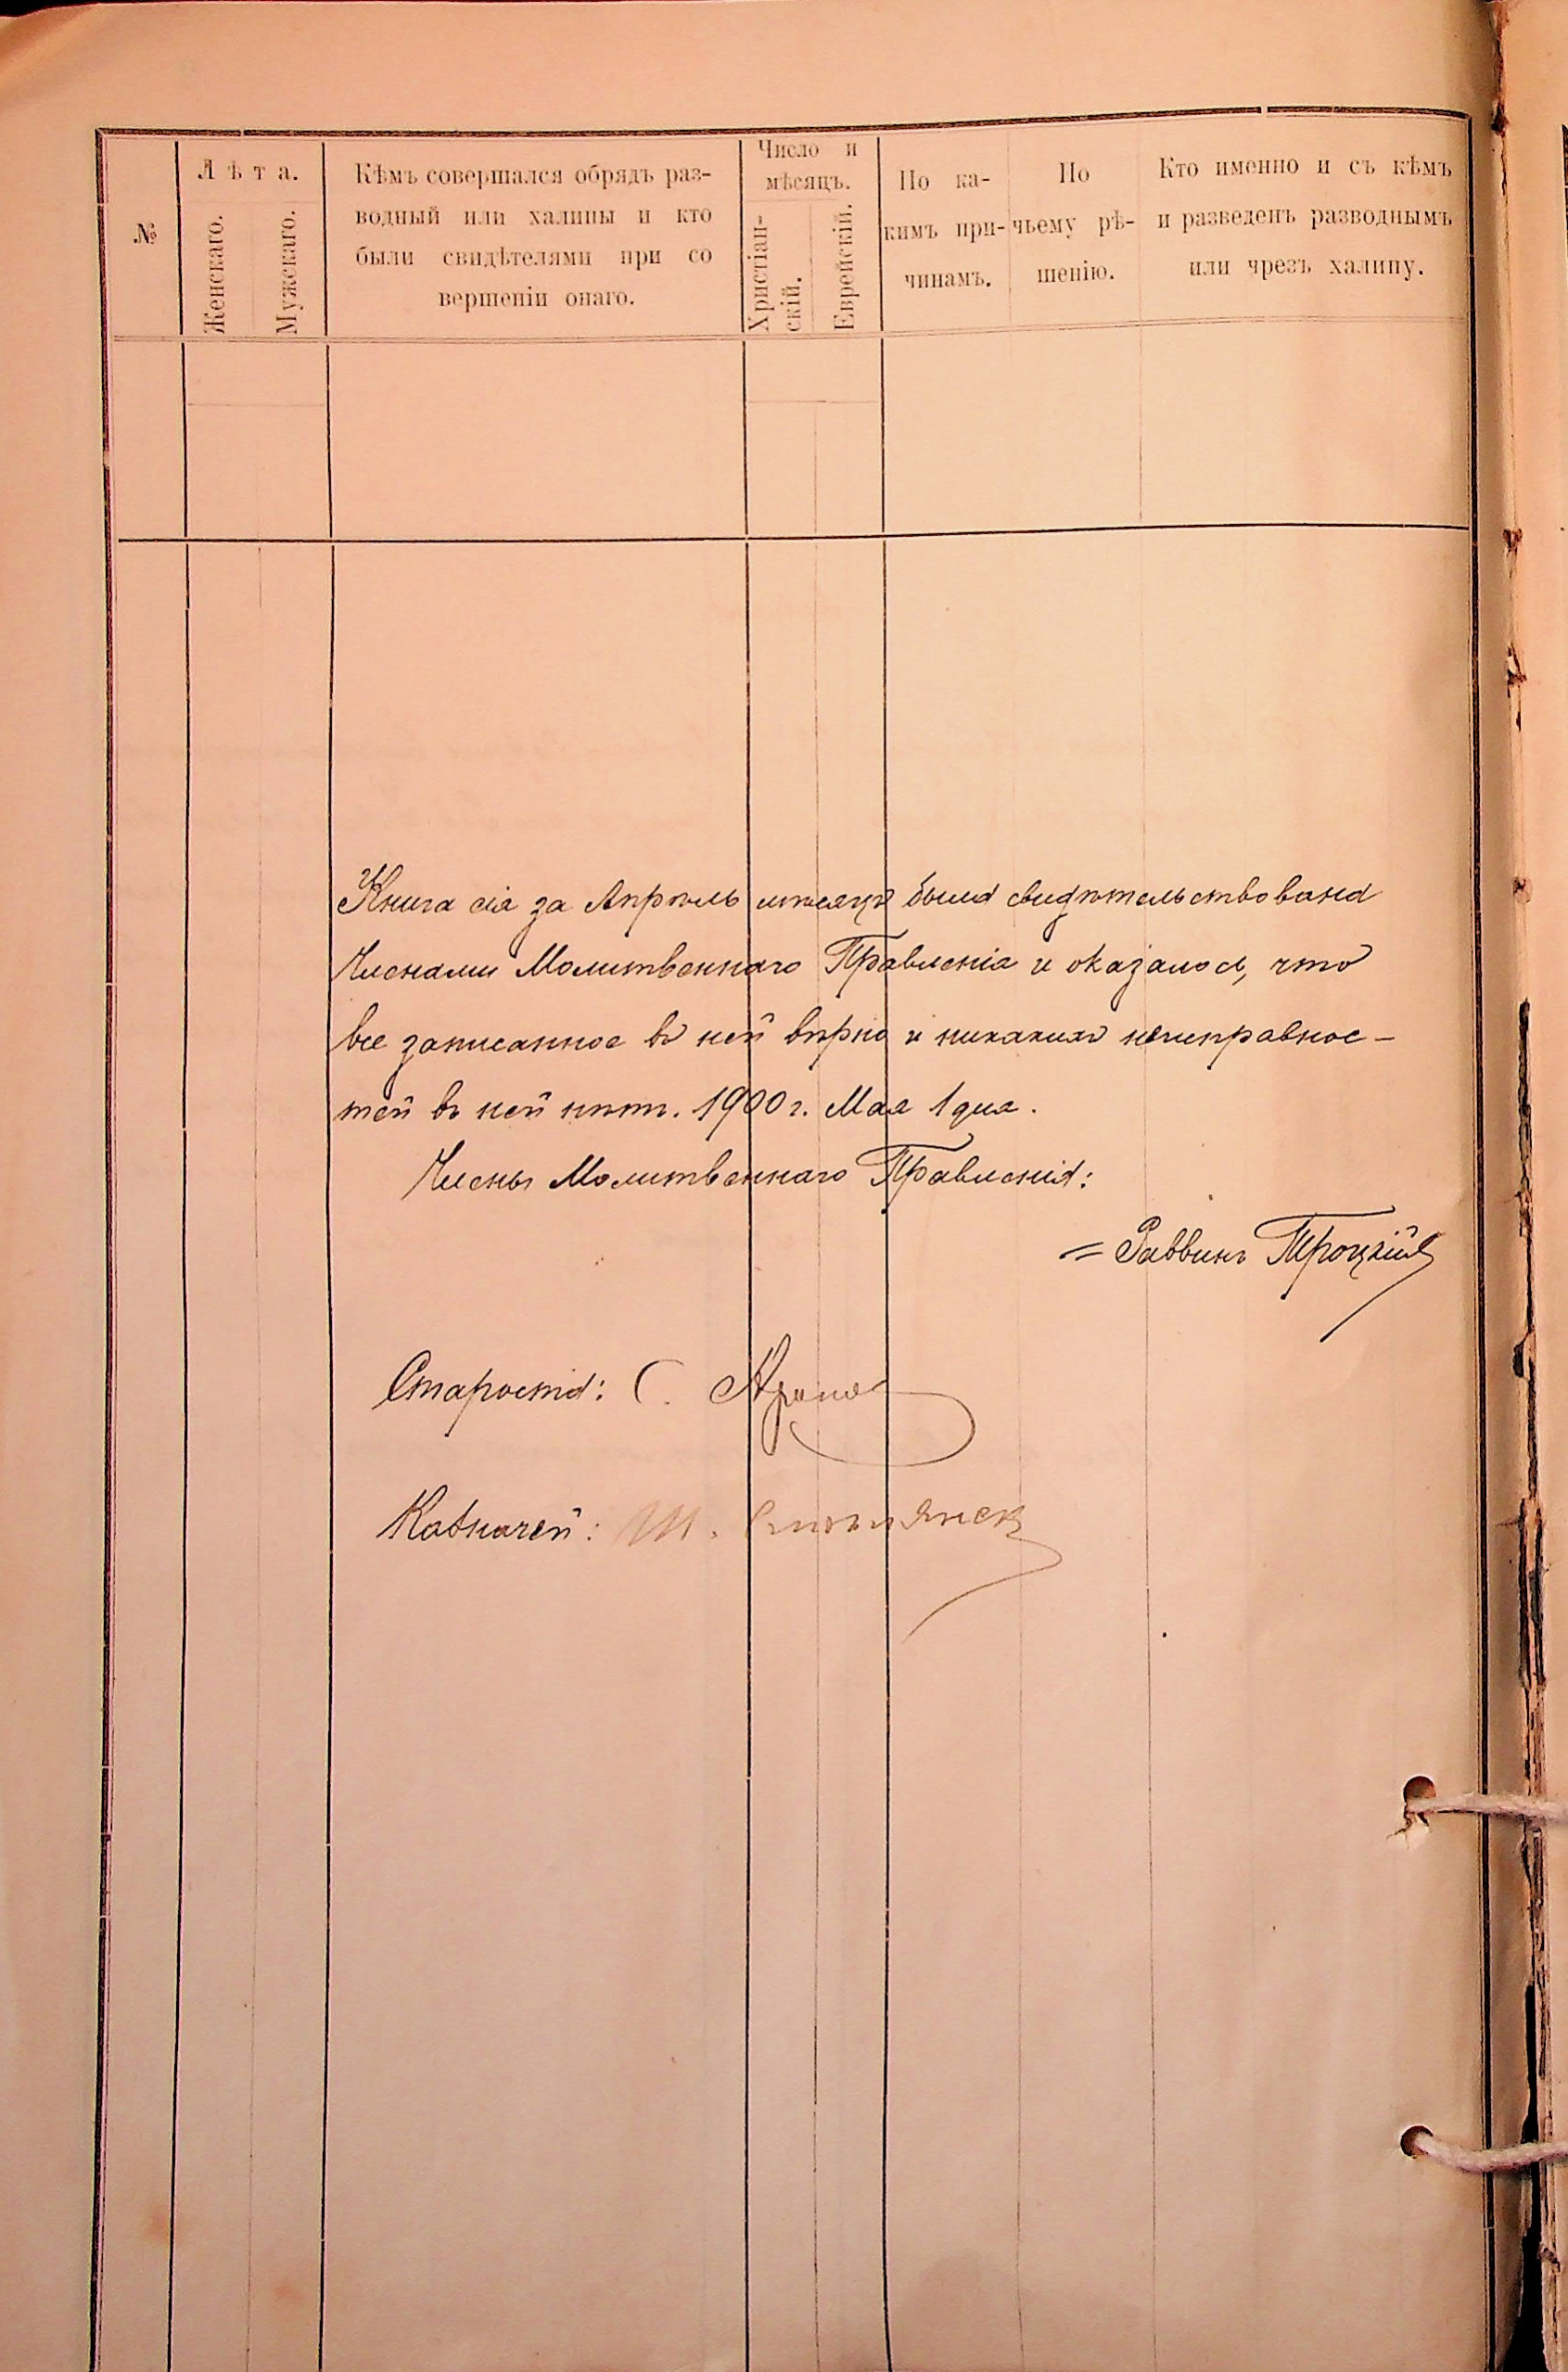 №
Лѣта.
Женскаго.
Мужскаго.
Кѣмъ совершался обрядъ раз-
водный или халицы и кто
были свидѣтелями при со
вершеніи онаго.
Число и
мѣсяцъ.
Христіан-
скій.
Еврейскій.
По ка-
кимъ при-
чинамъ.
По
чьему рѣ-
шенію.
Кто именно и съ кѣмъ
и разведенъ разводнымъ
или чрезъ халицу.
Книга сія за Апрѣль мѣсяцъ была свидѣтельствована
Членами Молитвеннаго Правленія и оказалось, что
все записанное въ ней вѣрно и никакихъ неисправнос-
тей въ ней нѣтъ. 1900 г. Мая 1 дня.
Члены Молитвеннаго Правленія:
= Раввинъ Троцкій
Староста: С.
Казначей: Ш.